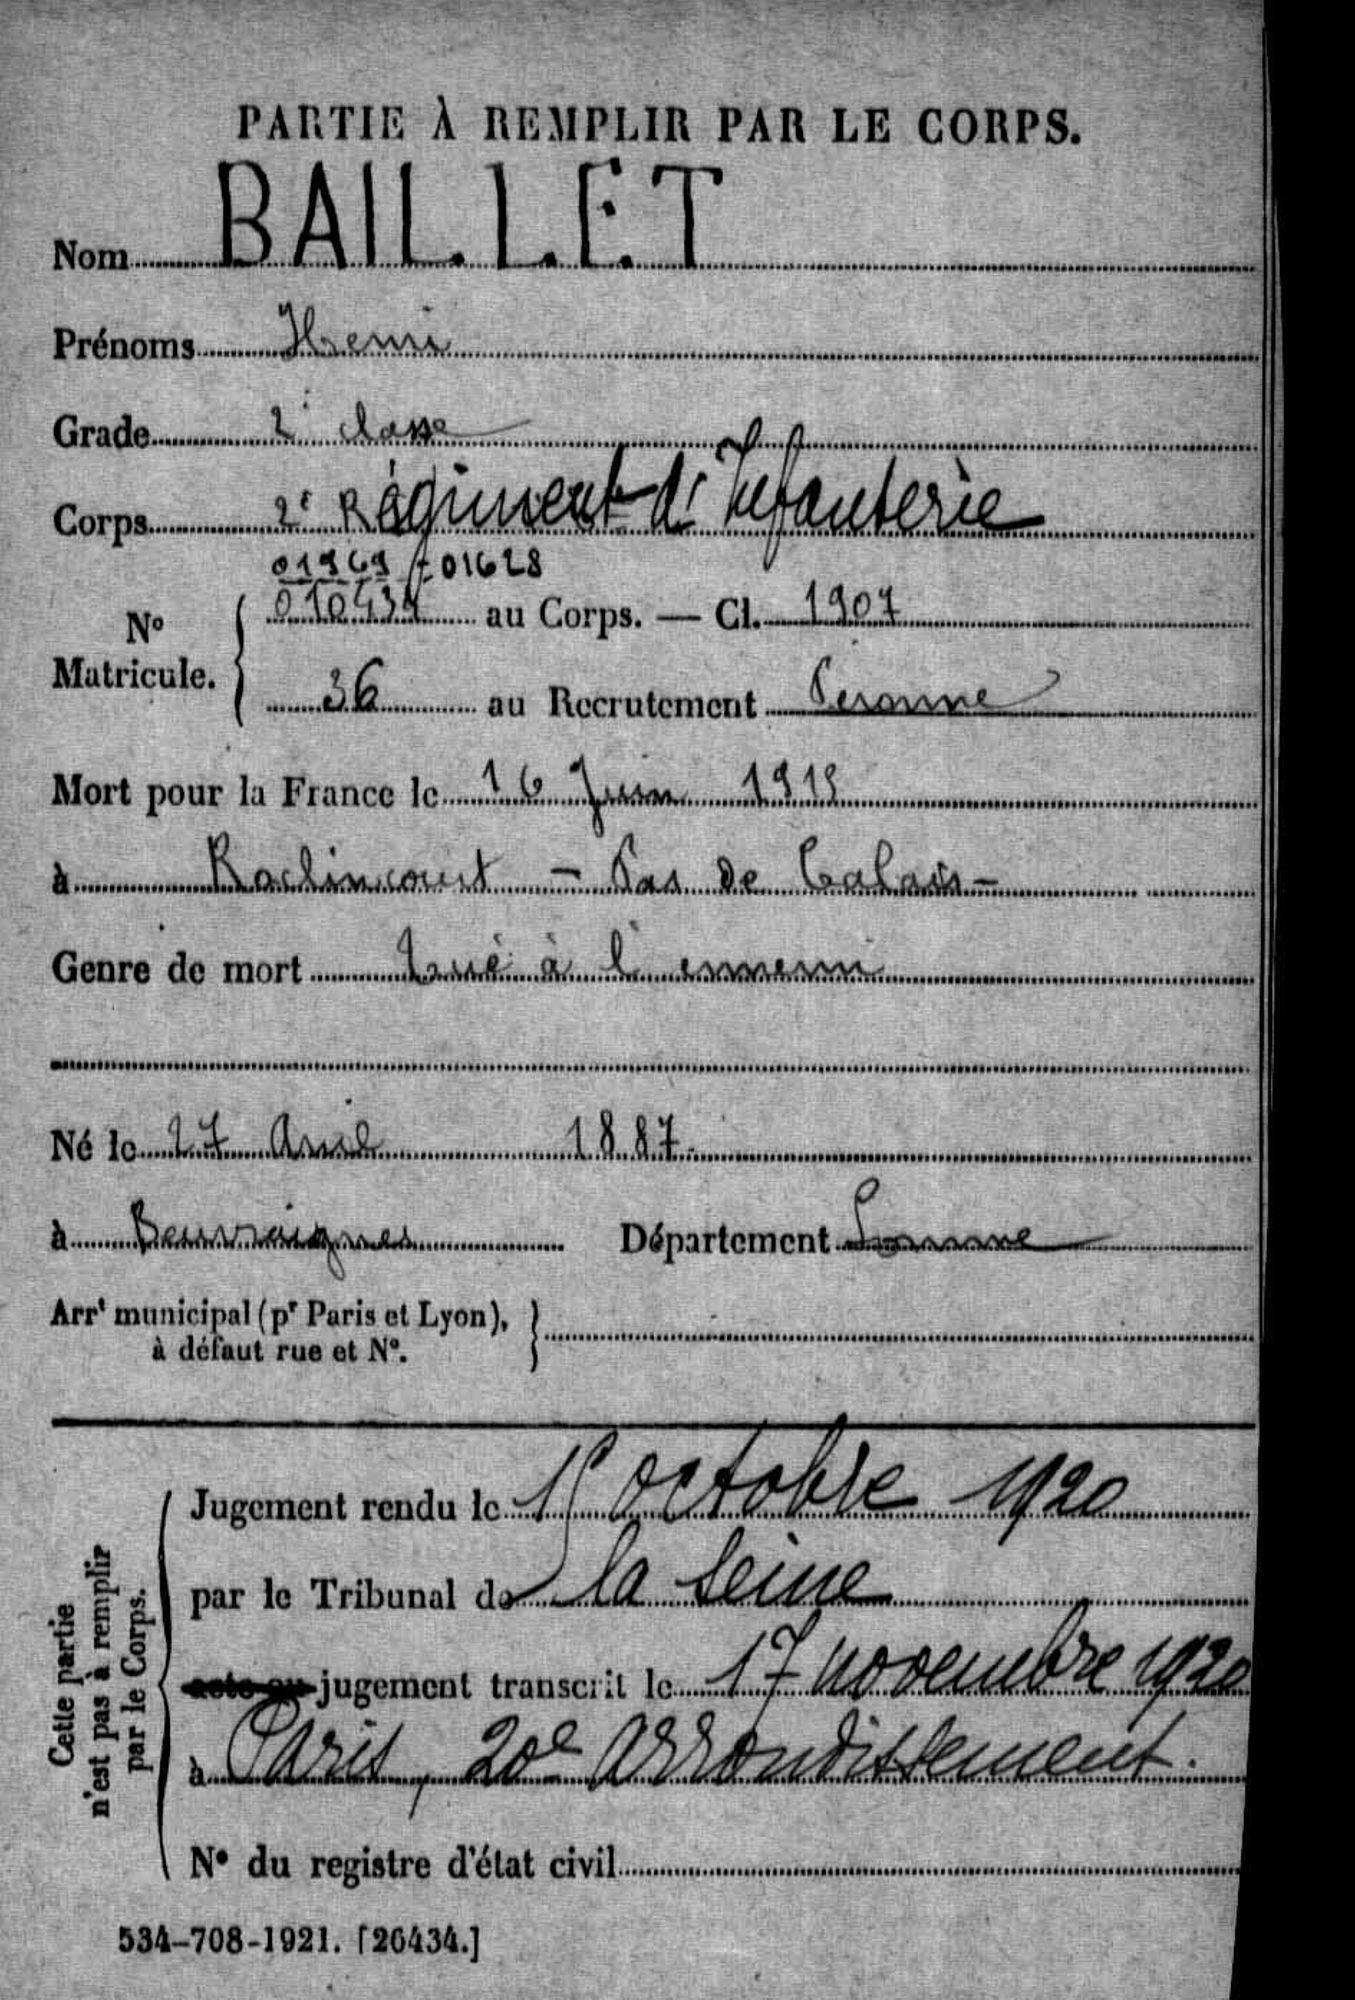 PARTIE À REMPLIR PAR LE CORPS.
Nom BAILLET
Prénoms Henri
Grade 2e classe
Corps 2e Régiment d'Infanterie
01969 01628
010439 au Corps. — Cl. 1907
N° Matricule.
36 au Recrutement Peronne
Mort pour la France le 16 Juin 1915
à Roclincourt - Pas de Calais -
Genre de mort Tué à l'ennemi
Né le 27 Avril 1887
à Beuvraignes Département Somme
Arrt municipal (pr Paris et Lyon),
à défaut rue et N°.
Cette partie
n'est pas à remplir
par le Corps.
Jugement rendu le octobre 1920
par le Tribunal de la Seine
acte ou jugement transcrit le 17 novembre 1920
à Paris, 20e arrondissement.
N° du registre d'état civil
534-708-1921. [26434.]